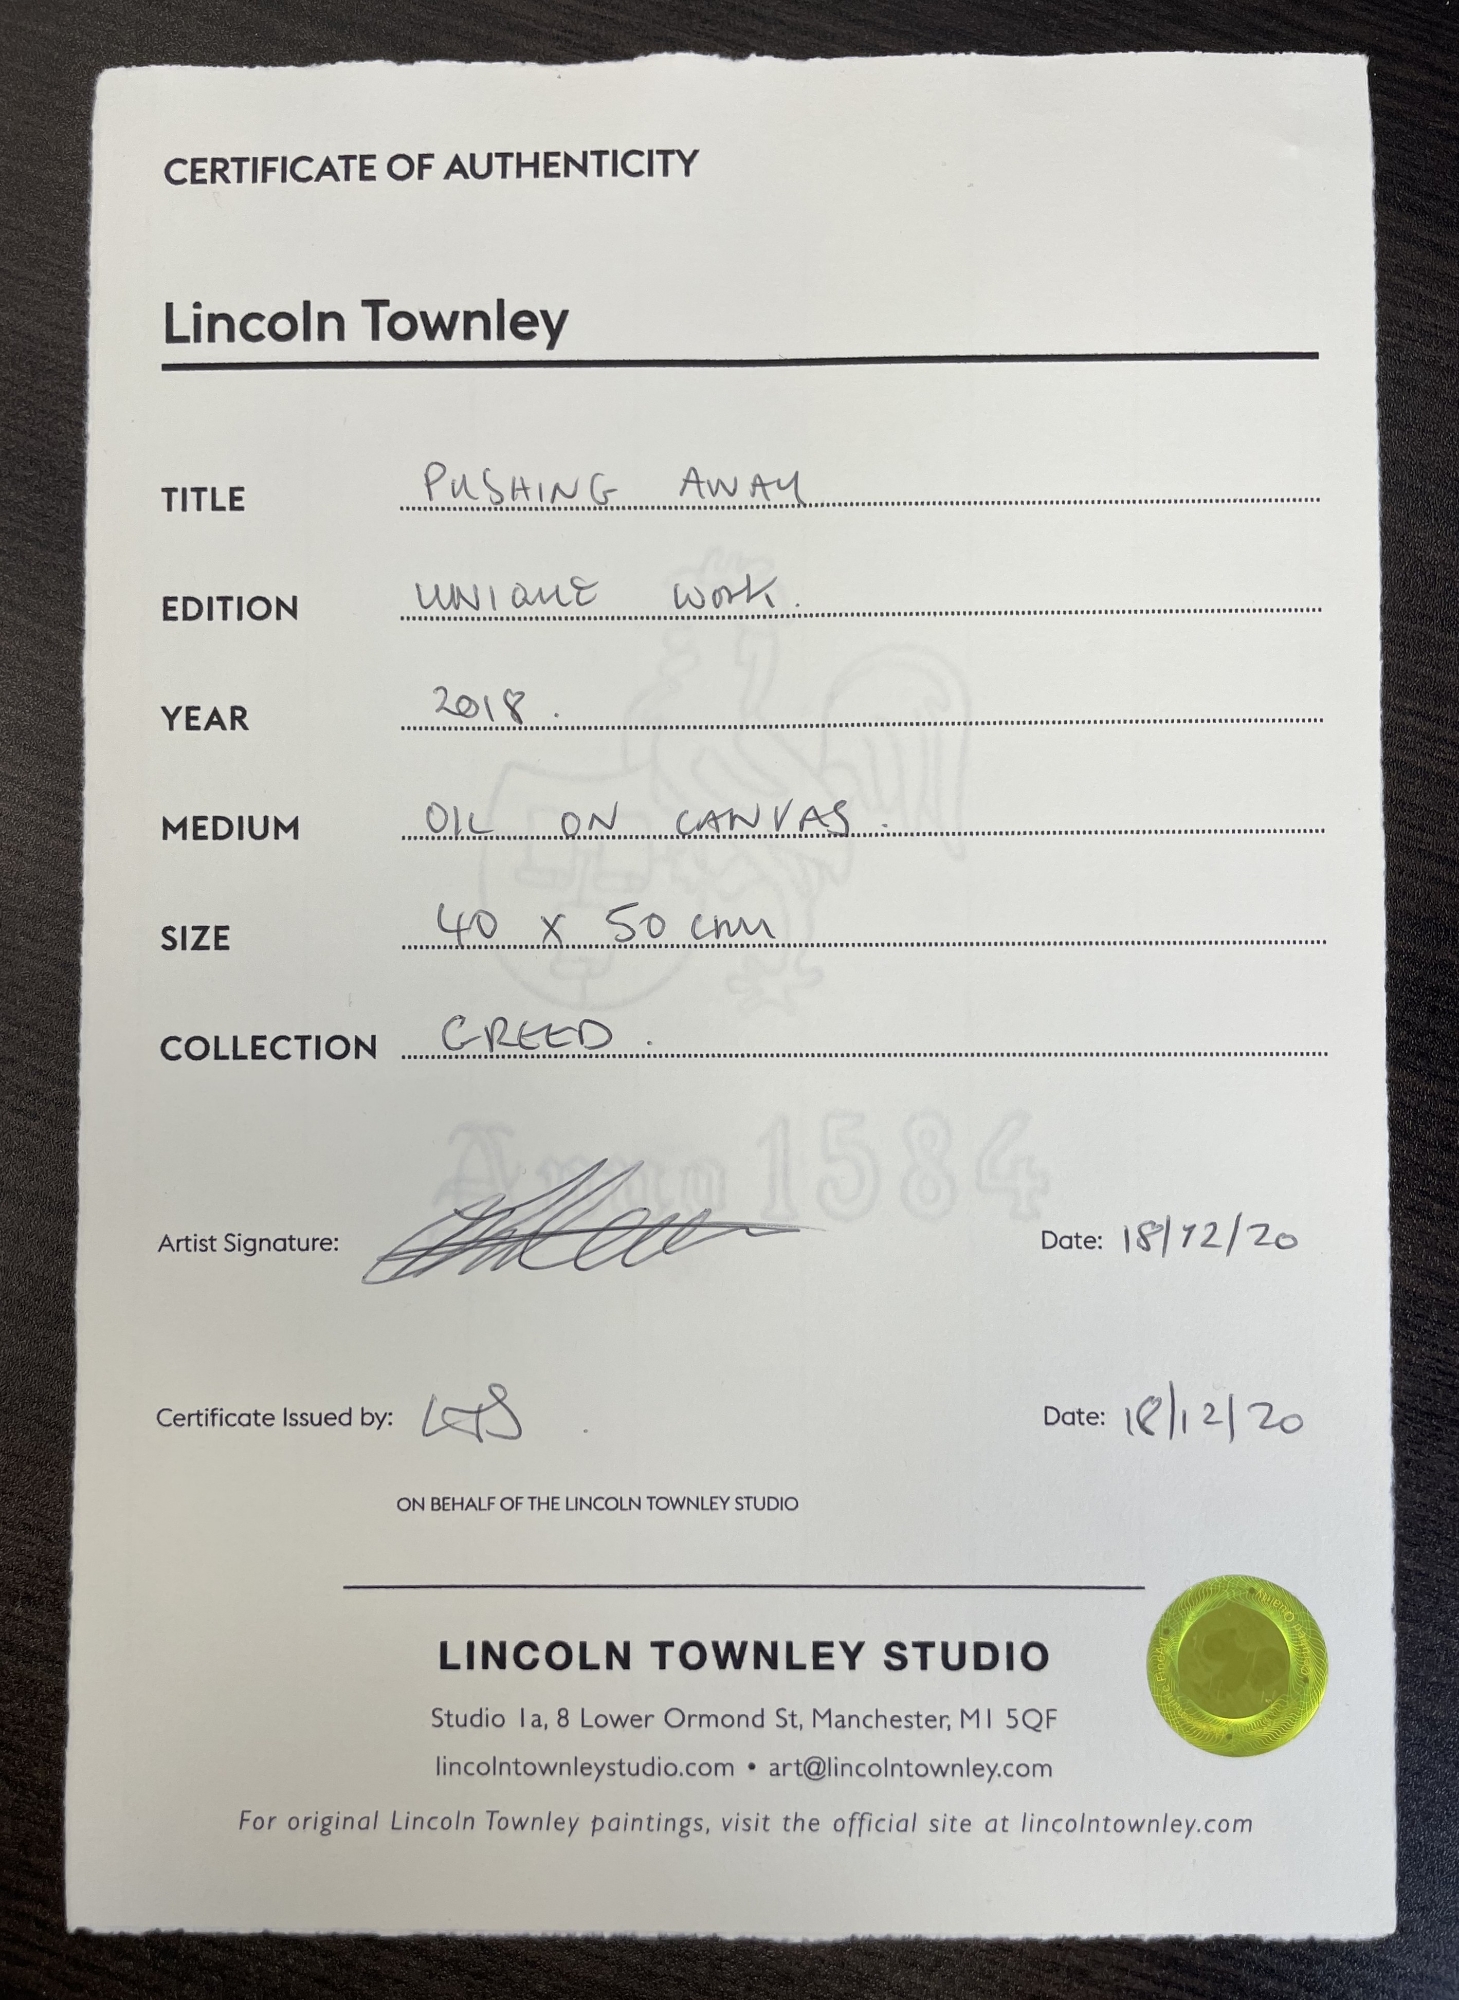 CERTIFICATE OF AUTHENTICITY
Lincoln Townley
TITLE PUSHING AWAY
EDITION UNIQUE WORK.
YEAR 2018.
MEDIUM OIL ON CANVAS.
SIZE 40 x 50 cm
COLLECTION GREED.
Anno 1584
Artist Signature: Date: 18/12/20
Certificate Issued by: Date: 18/12/20
ON BEHALF OF THE LINCOLN TOWNLEY STUDIO
LINCOLN TOWNLEY STUDIO
Studio 1a, 8 Lower Ormond St, Manchester, M1 5QF
lincolntownleystudio.com • art@lincolntownley.com
For original Lincoln Townley paintings, visit the official site at lincolntownley.com